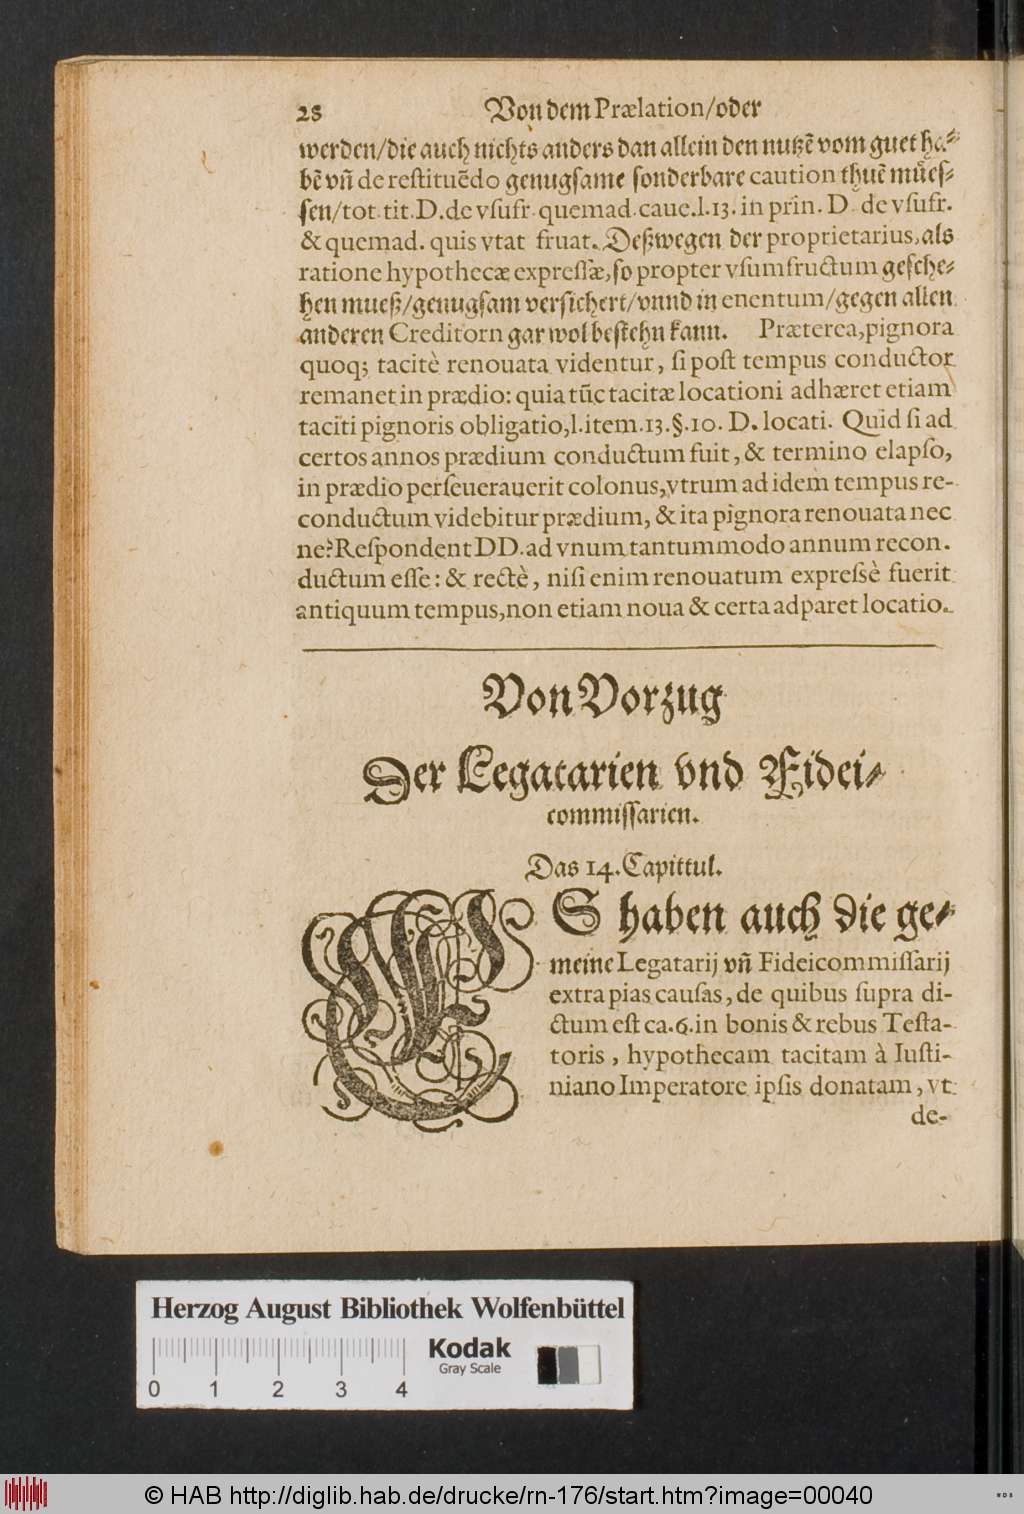 28 Von dem Prælation/oder
werden/die auch nichts anders dan allein den nutzē vom guet ha-
bē vñ de restituēdo genugsame sonderbare caution thuē můes-
sen/tot.tit.D.de vsufr.quemad.caue.l.13.in prin.D. de vsufr.
& quemad. quis vtat fruat. Deßwegen der proprietarius, als
ratione hypothecæ expressæ, so propter vsumfructum gesche-
hen mueß/genugsam versichert/vnnd in enentum/gegen allen
anderen Creditorn gar wol bestehn kann. Præterea, pignora
quoq; tacitè renouata videntur, si post tempus conductor
remanet in prædio: quia tūc tacitæ locationi adhæret etiam
taciti pignoris obligatio, l.item.13.§.10. D. locati. Quid si ad
certos annos prædium conductum fuit, & termino elapso,
in prædio perseuerauerit colonus, vtrum ad idem tempus re-
conductum videbitur prædium, & ita pignora renouata nec
ne? Respondent DD. ad vnum tantummodo annum recon.
ductum esse: & rectè, nisi enim renouatum expresè fuerit
antiquum tempus, non etiam noua & certa adparet locatio.
Von Vorzug
Der Legatarien vnd Fidei-
commissarien.
Das 14. Capittul.
ES haben auch die ge-
meine Legatarij vñ Fideicommissarij
extra pias causas, de quibus supra di-
ctum est ca.6.in bonis & rebus Testa-
toris, hypothecam tacitam à Iusti-
niano Imperatore ipsis donatam, vt
de-
Herzog August Bibliothek Wolfenbüttel
Kodak
Gray Scale
0 1 2 3 4
© HAB http://diglib.hab.de/drucke/rn-176/start.htm?image=00040